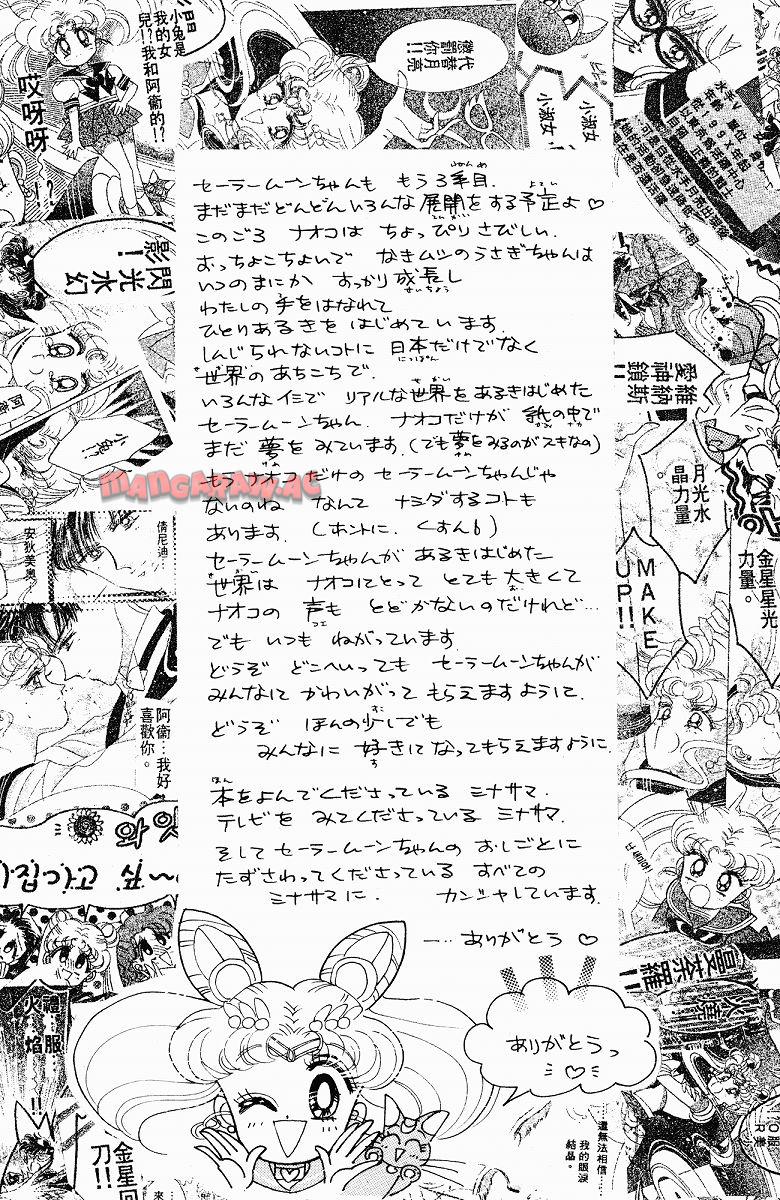 セーラームーンちゃんも もう3年目.
まだまだどんどんいろんな展開をする予定よ♡
このごろ ナオコは ちょっぴりさびしい.
おっちょこちょいで なきムシのうさぎちゃんは
いつのまにか すっかり成長し
わたしの手をはなれて
ひとりあるきを はじめています.
しんじられないコトに 日本だけでなく
世界のあちこちで.
いろんなイミで リアルな世界をあるきはじめた
セーラームーンちゃん. ナオコだけが 紙の中で
まだ 夢をみています.(でも夢をみるのがスキなの)
もうナオコだけの セーラームーンちゃんじゃ
ないのね なんて ナミダするコトも
あります. (ホントに. くすん)
セーラームーンちゃんが あるきはじめた
世界は ナオコにとって とても大きくて
ナオコの 声も とどかないのだけれど…
でも いつも ねがっています
どうぞ どこへいっても セーラームーンちゃんが
みんなに かわいがって もらえますように.
どうぞ ほんの少しでも
みんなに 好きになってもらえますように.
本をよんでくださっている ミナサマ.
テレビを みてくださっている ミナサマ.
そして セーラームーンちゃんの おしごとに
たずさわってくださっている すべての
ミナサマに. カンシャしています.
……ありがとう♡
ありがとうっ
♡
小兔是
我的女
兒!?我
和阿衛的!?
哎呀呀
!?
代替月亮
懲罰你!!
小淑女
小淑女
影!
閃光水幻
小兔!?
MANGARAW.AC
倩尼迪…
安狄美奧
阿衛…我好
喜歡你。
愛維納
神斯
鎖!!
月光水
晶力量
金星星光
力量。
MAKE
UP!!
Hotaru
曼荼羅!!
火煙
禮服
火焰
!!
金星回
刀!!
還無法相信…
我的眼淚
結晶。